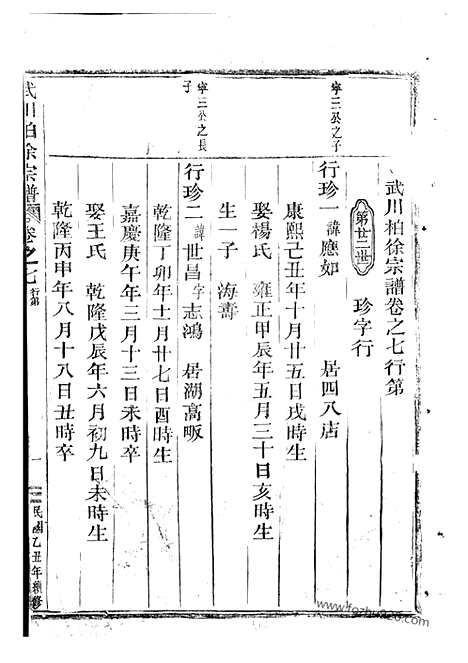 武川柏徐宗譜卷之七行第
第廿二世
珍字行
寧三公之子
行珍一 諱應如 居四八店
康熙己丑年十月廿五日戌時生
娶楊氏 雍正甲辰年五月三十日亥時生
生一子 海壽
寧三公之長子
行珍二 諱世昌 字志鴻 居湖高畈
乾隆丁卯年十一月廿七日酉時生
嘉慶庚午年三月十三日未時卒
娶王氏 乾隆戊辰年六月初九日未時生
乾隆丙申年八月十八日丑時卒
武川柏徐宗譜 卷之七 行第
一
民國乙丑年續修